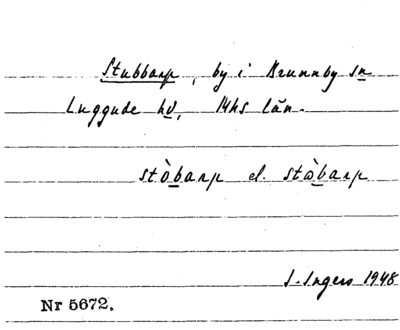 Stubbarp, by i Brunnby sn
Luggude hd, Mhs län.
stòbarp el. stɷ̀barp
I. Ingers 1948
Nr 5672.